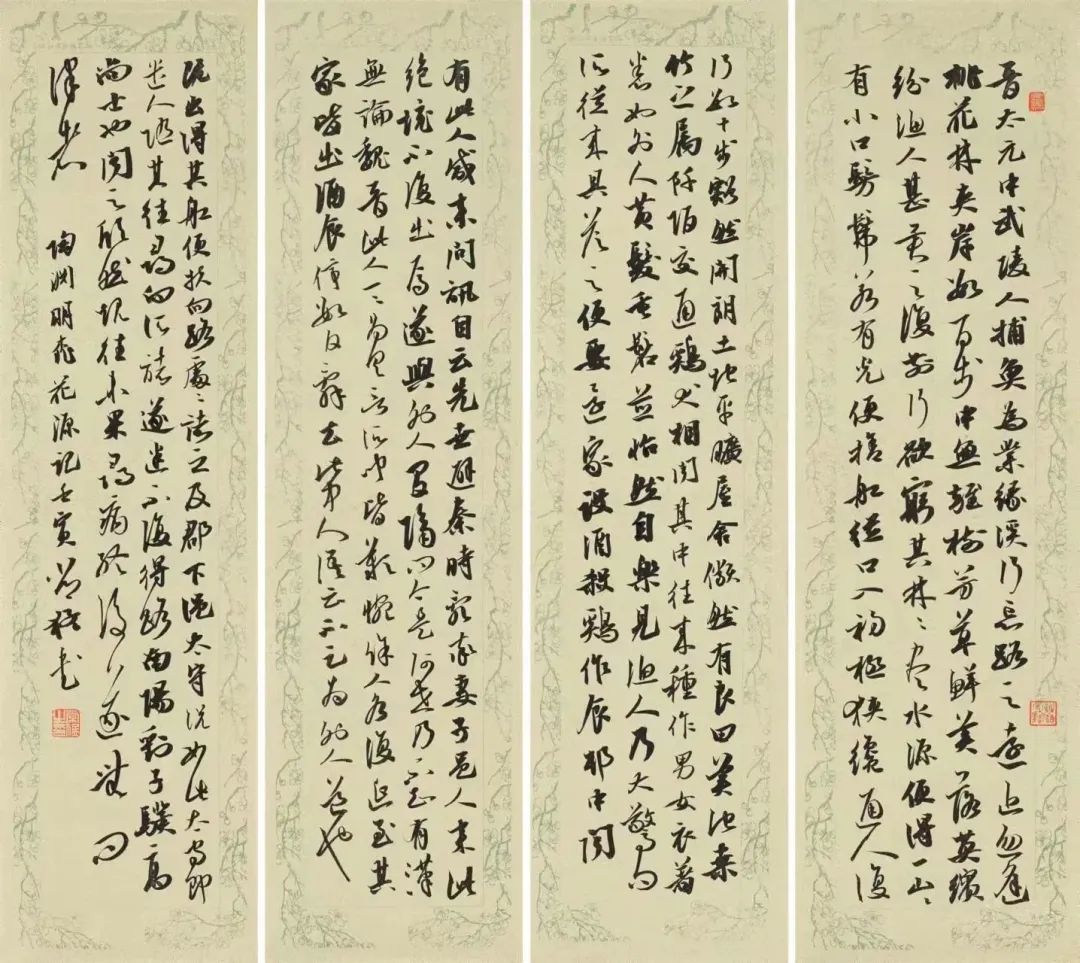 晉太元中武陵人捕魚為業緣溪行忘路之遠近忽逢
桃花林夾岸數百步中無雜樹芳草鮮美落英繽
紛漁人甚異之復前行欲窮其林林盡水源便得一山山
有小口髣髴若有光便捨船從口入初極狹纔通人復
行數十步豁然開朗土地平曠屋舍儼然有良田美池桑
竹之屬阡陌交通鷄犬相聞其中往来種作男女衣著
悉如外人黄髮垂髫並怡然自樂見漁人乃大驚問
所從来具答之便要還家設酒殺鷄作食邨中聞
有此人咸来問訊自云先世避秦時亂率妻子邑人来此
絶境不復出焉遂與外人間隔問今是何世乃不知有漢
無論魏晉此人一一為具言所聞皆歎惋餘人各復延至其
家皆出酒食停數日辭去此中人語云不足為外人道也
既出得其船便扶向路處處誌之及郡下詣太守說如此太守即
遣人隨其往尋向所誌遂迷不復得路南陽劉子驥高
尚士也聞之欣然規往未果尋病終後遂無問
津者 陶淵明桃花源記壬寅 書